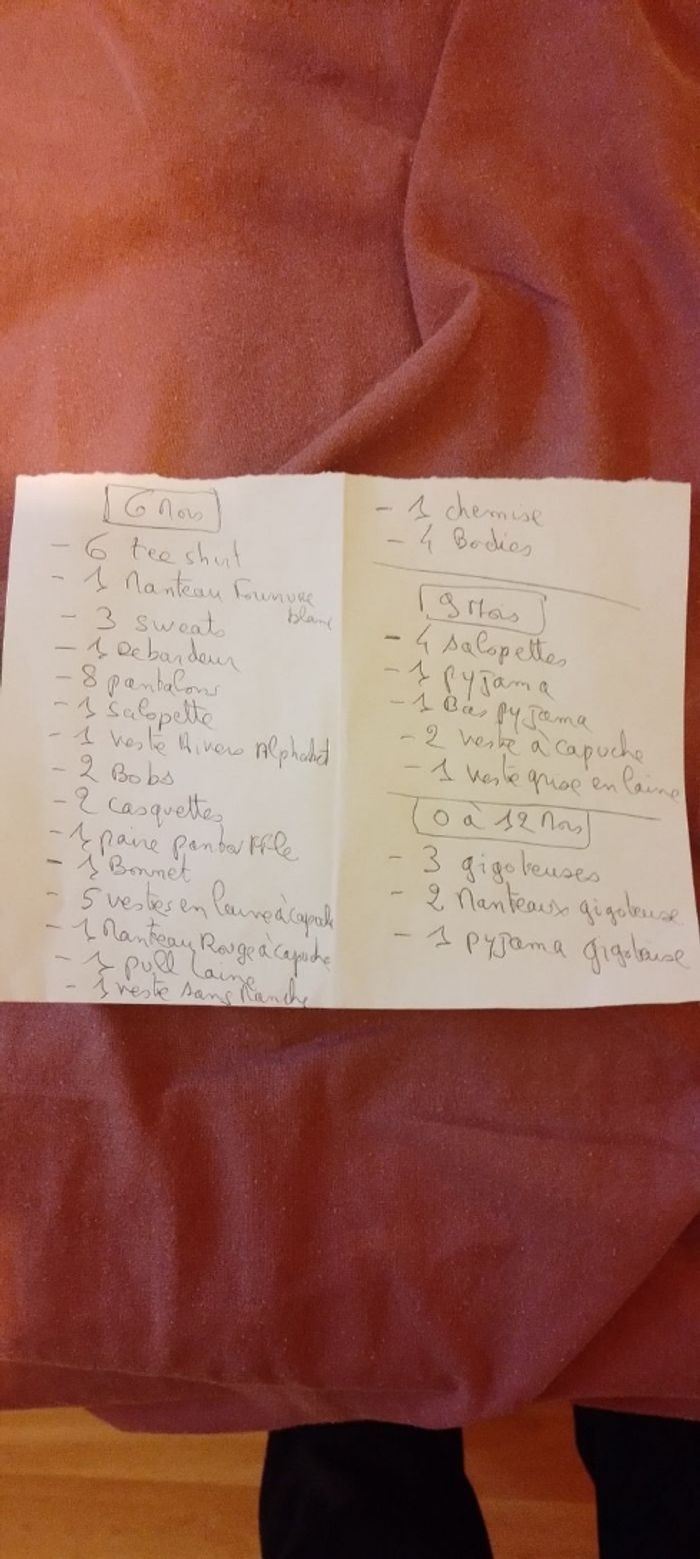 6 Mois
- 6 tee shirt
- 1 Manteau Fourrure
blanc
- 3 sweats
- 1 Debardeur
- 8 pantalons
- 1 salopette
- 1 veste Alphabet
- 2 Bobs
- 2 casquettes
- 1 paire
- 1 Bonnet
- 5 vestes en laine à capuche
- 1 Manteau Rouge à capuche
- 1 pull laine
- 1 veste sans Manche
- 1 chemise
- 4 Bodies
9 Mois
- 4 salopettes
- 1 pyjama
- 1 Bas pyjama
- 2 veste à capuche
- 1 veste grise en laine
0 à 12 Mois
- 3 gigoteuses
- 2 Manteaux gigoteuse
- 1 pyjama gigoteuse